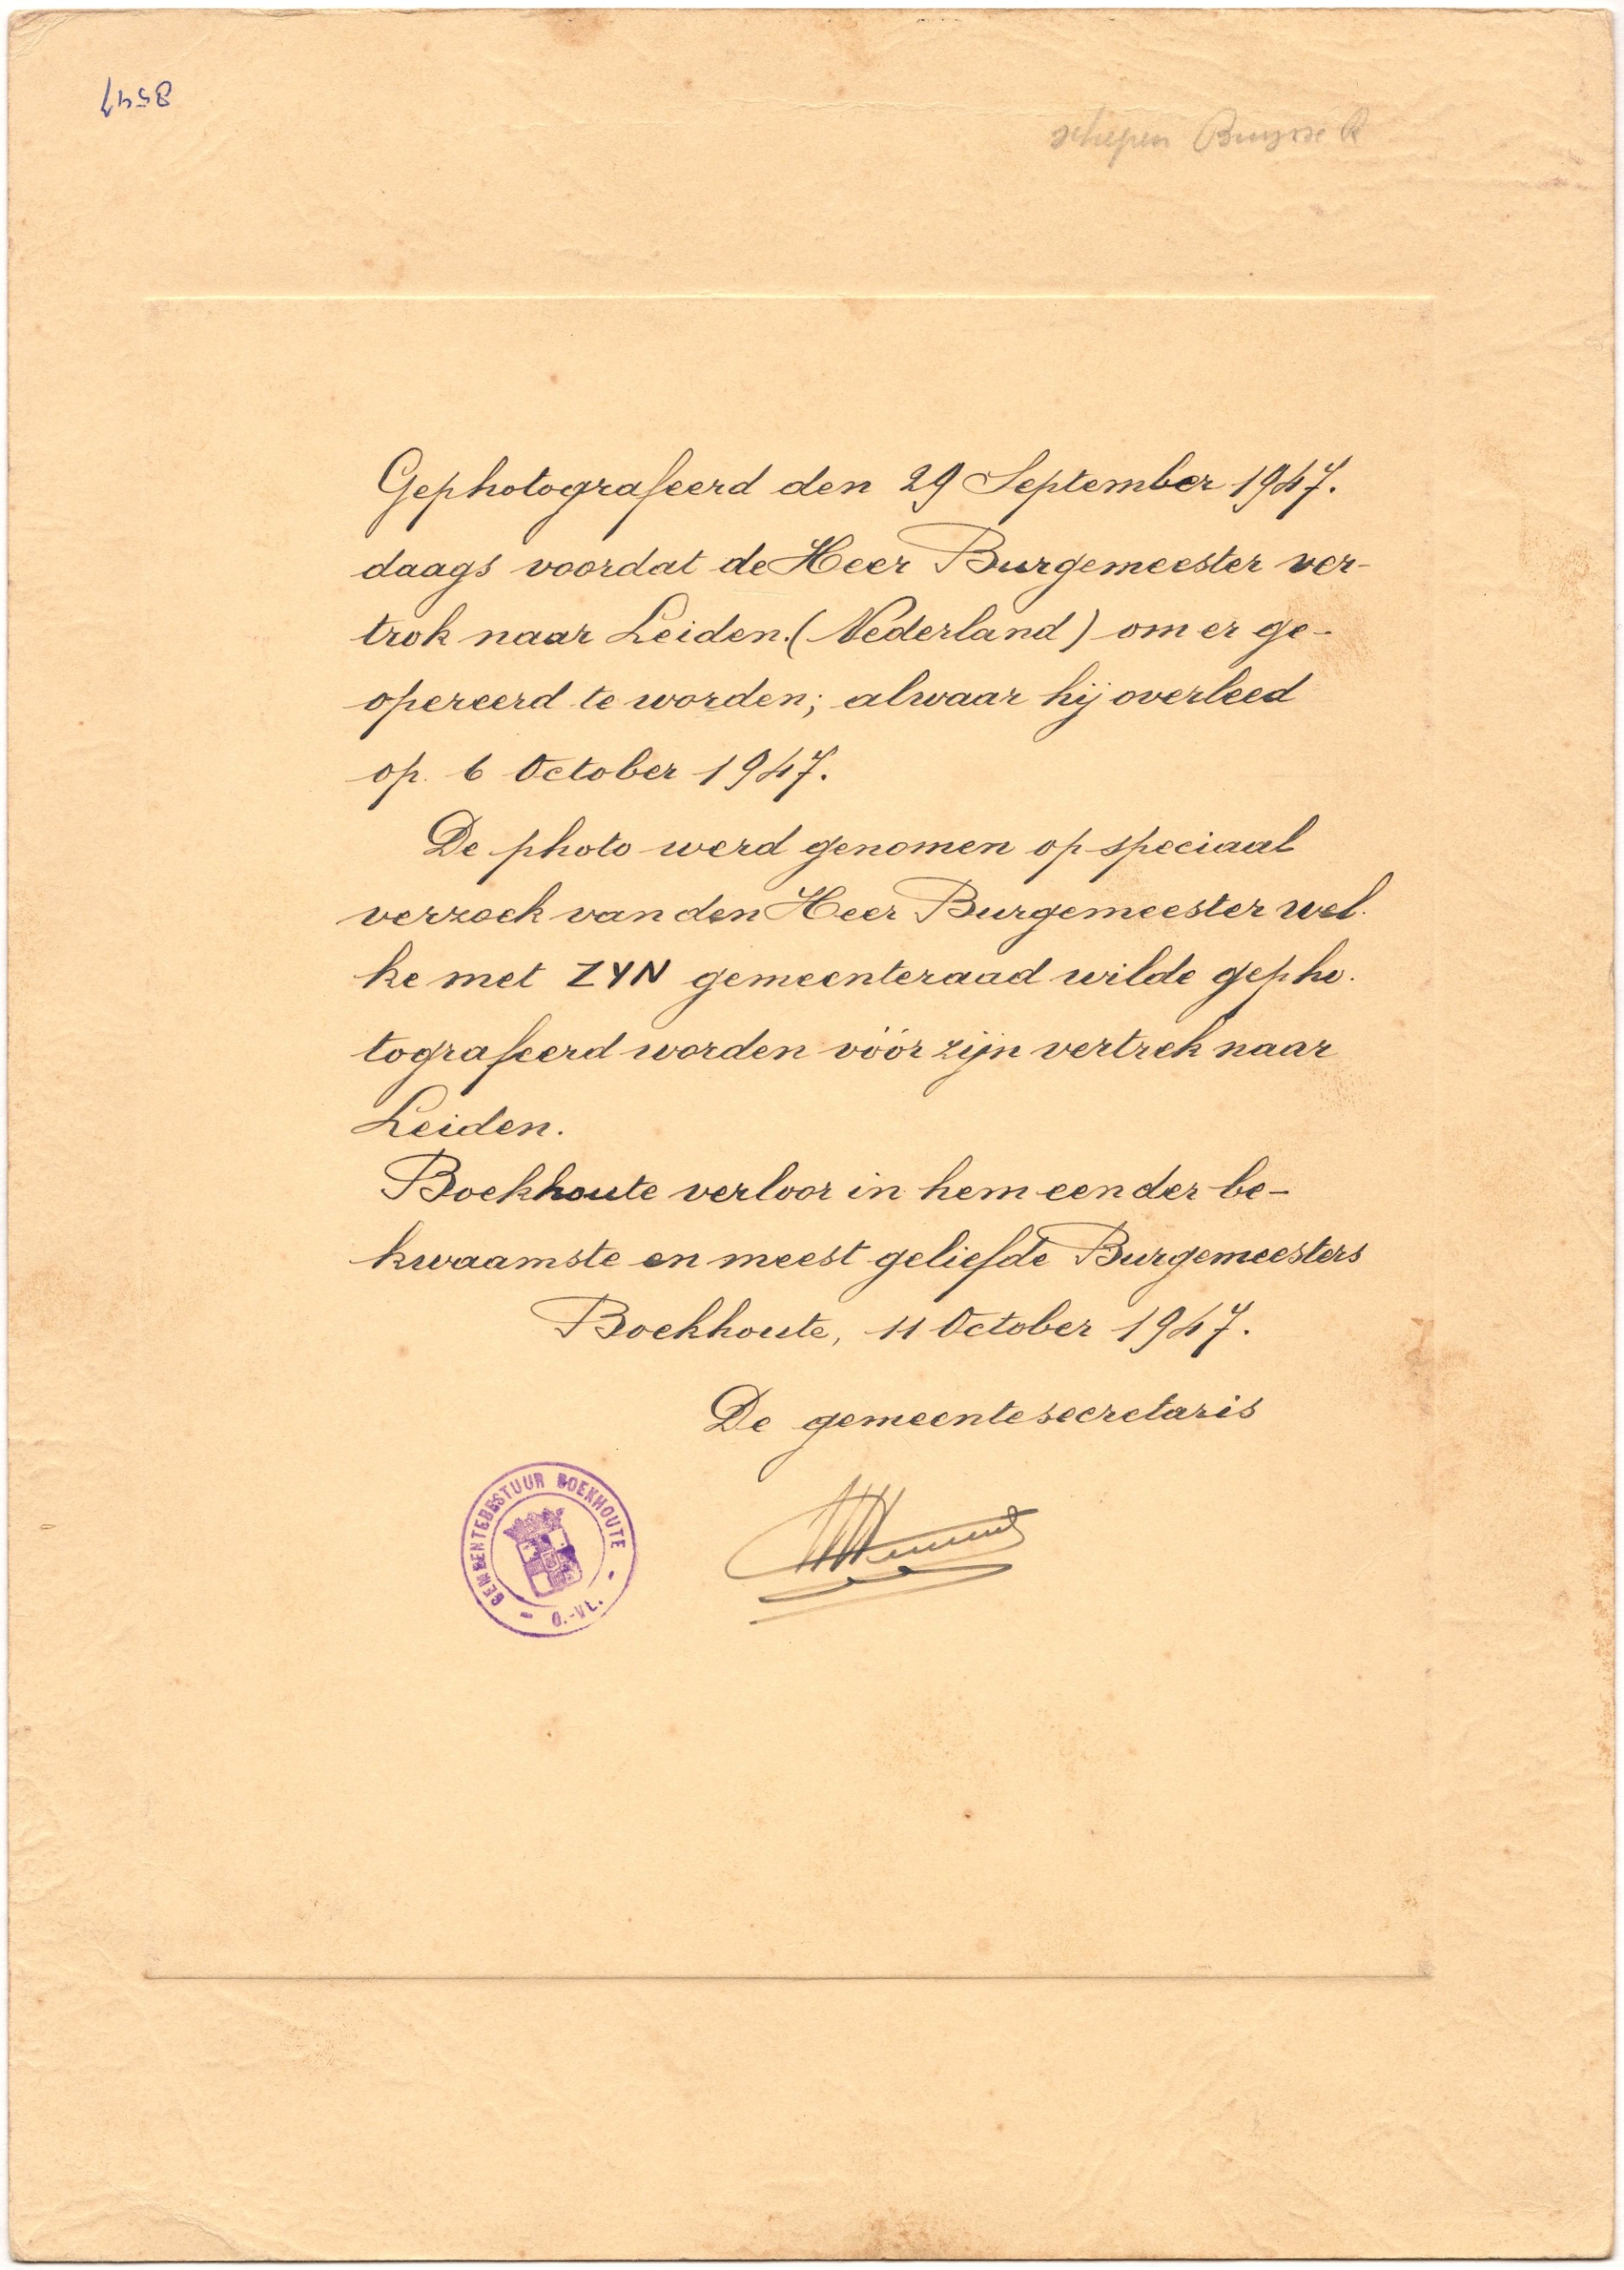 schepen Buysse R
Gephotografeerd den 29 September 1947.
daags voordat de Heer Burgemeester ver-
trok naar Leiden.(Nederland) om er ge-
opereerd te worden; alwaar hij overleed
op. 6 October 1947.
De photo werd genomen op speciaal
verzoek van den Heer Burgemeester wel-
ke met ZYN gemeenteraad wilde gepho-
tografeerd worden vóór zijn vertrek naar
Leiden.
Boekhoute verloor in hem een der be-
kwaamste en meest geliefde Burgemeesters
Boekhoute, 11 October 1947.
De gemeentesecretaris
GEMEENTEBESTUUR BOEKHOUTE
O.-VL.